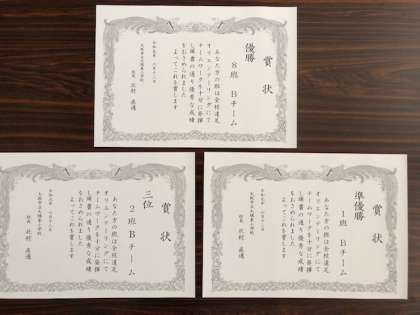 賞状
優勝
8班 Bチーム
あなた方の班は全校遠足
オリエンテーリングにて
チームワークを十分に発揮
し頭書の通り優秀な成績
をおさめられました
よってこれを賞します
校長 北村 直通
賞状
三位
2班 Bチーム
あなた方の班は全校遠足
オリエンテーリングにて
チームワークを十分に発揮
し頭書の通り優秀な成績
をおさめられました
よってこれを賞します
校長 北村 直通
賞状
準優勝
1班 Bチーム
あなた方の班は全校遠足
オリエンテーリングにて
チームワークを十分に発揮
し頭書の通り優秀な成績
をおさめられました
よってこれを賞します
校長 北村 直通